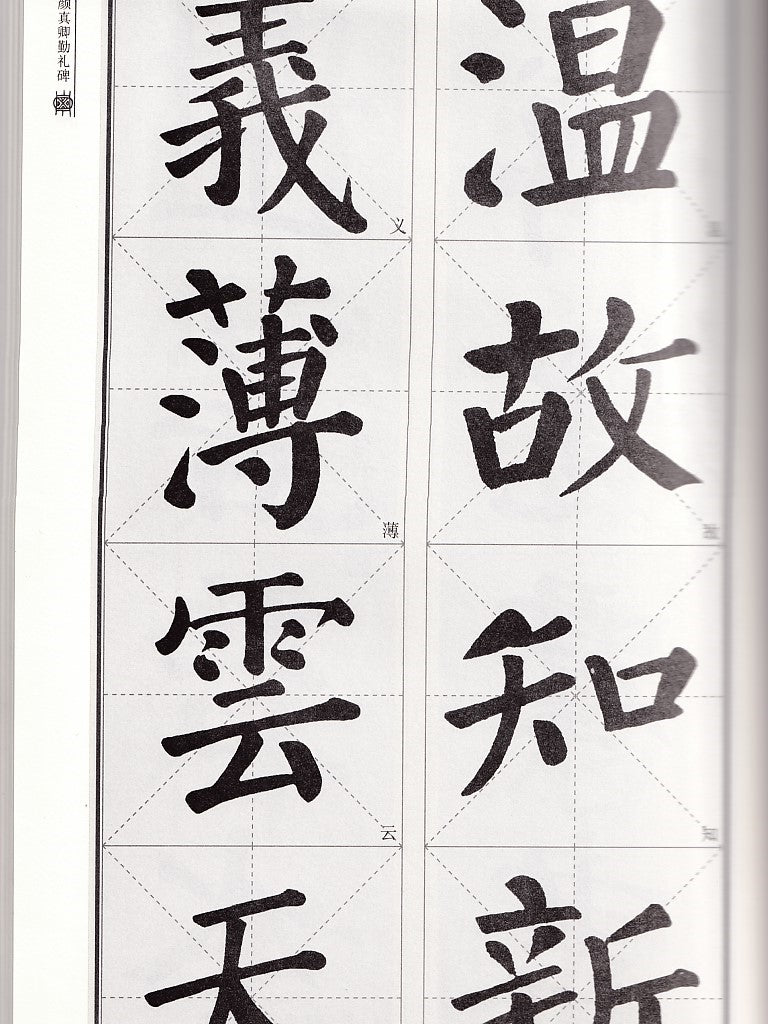 温故知新
義薄雲天
义
薄
云
故
知
颜真卿勤礼碑